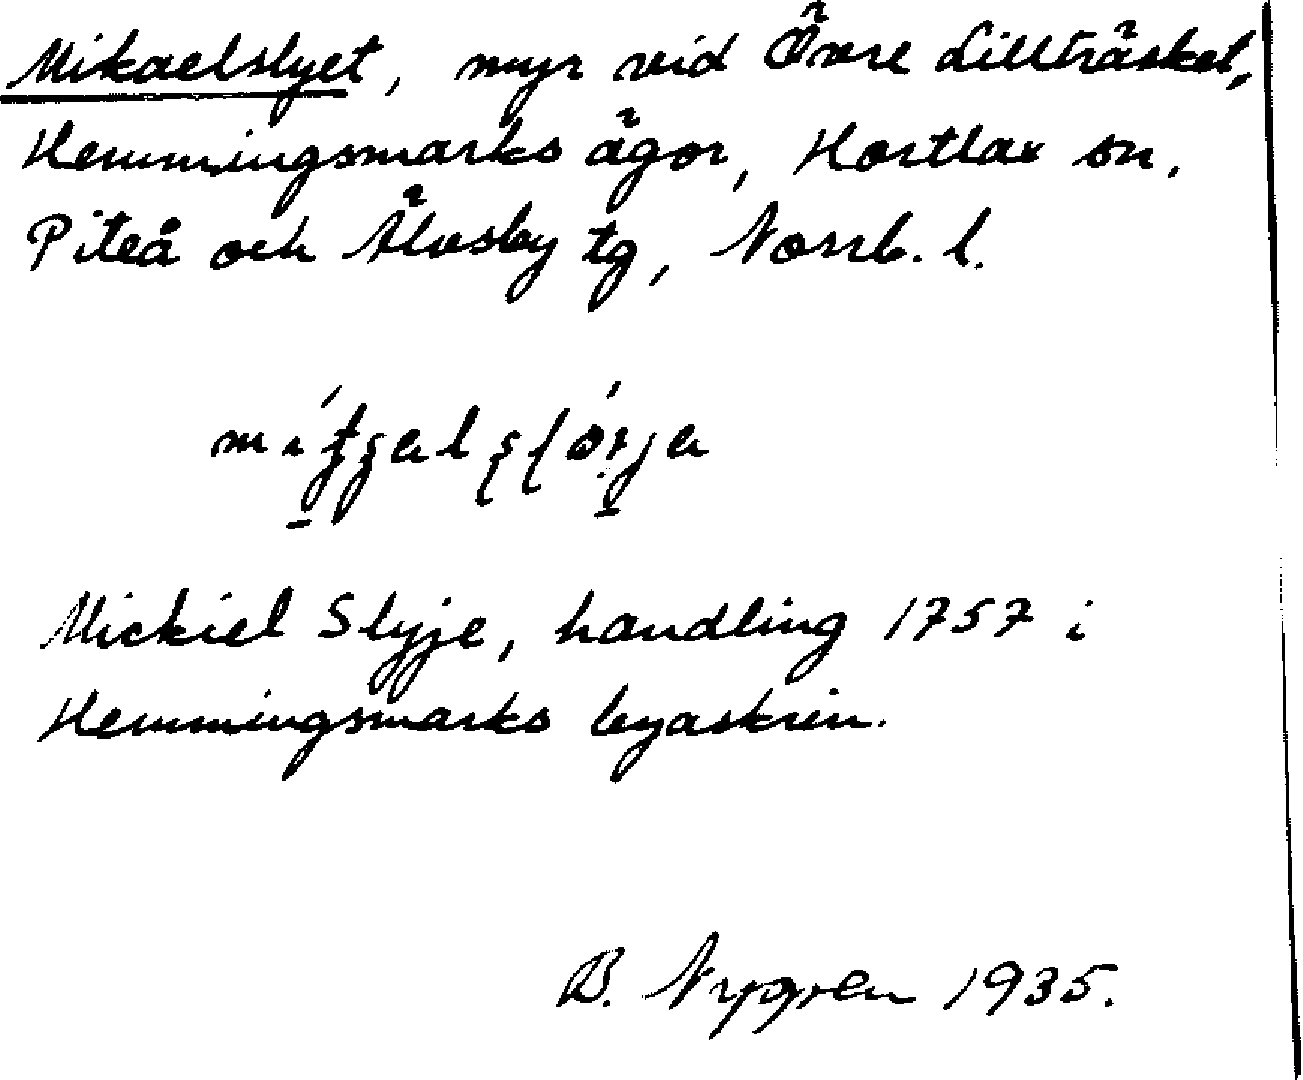 Mikaelslyet, myr vid Övre Lillträsket,
Hemmingsmarks ägor, Hortlax sn.
Piteå och Älvsby tg, Norrb. l.
Mickiel Slyje, handling 1757 i
Hemmingsmarks byaskrin.
B. Nygren 1935.